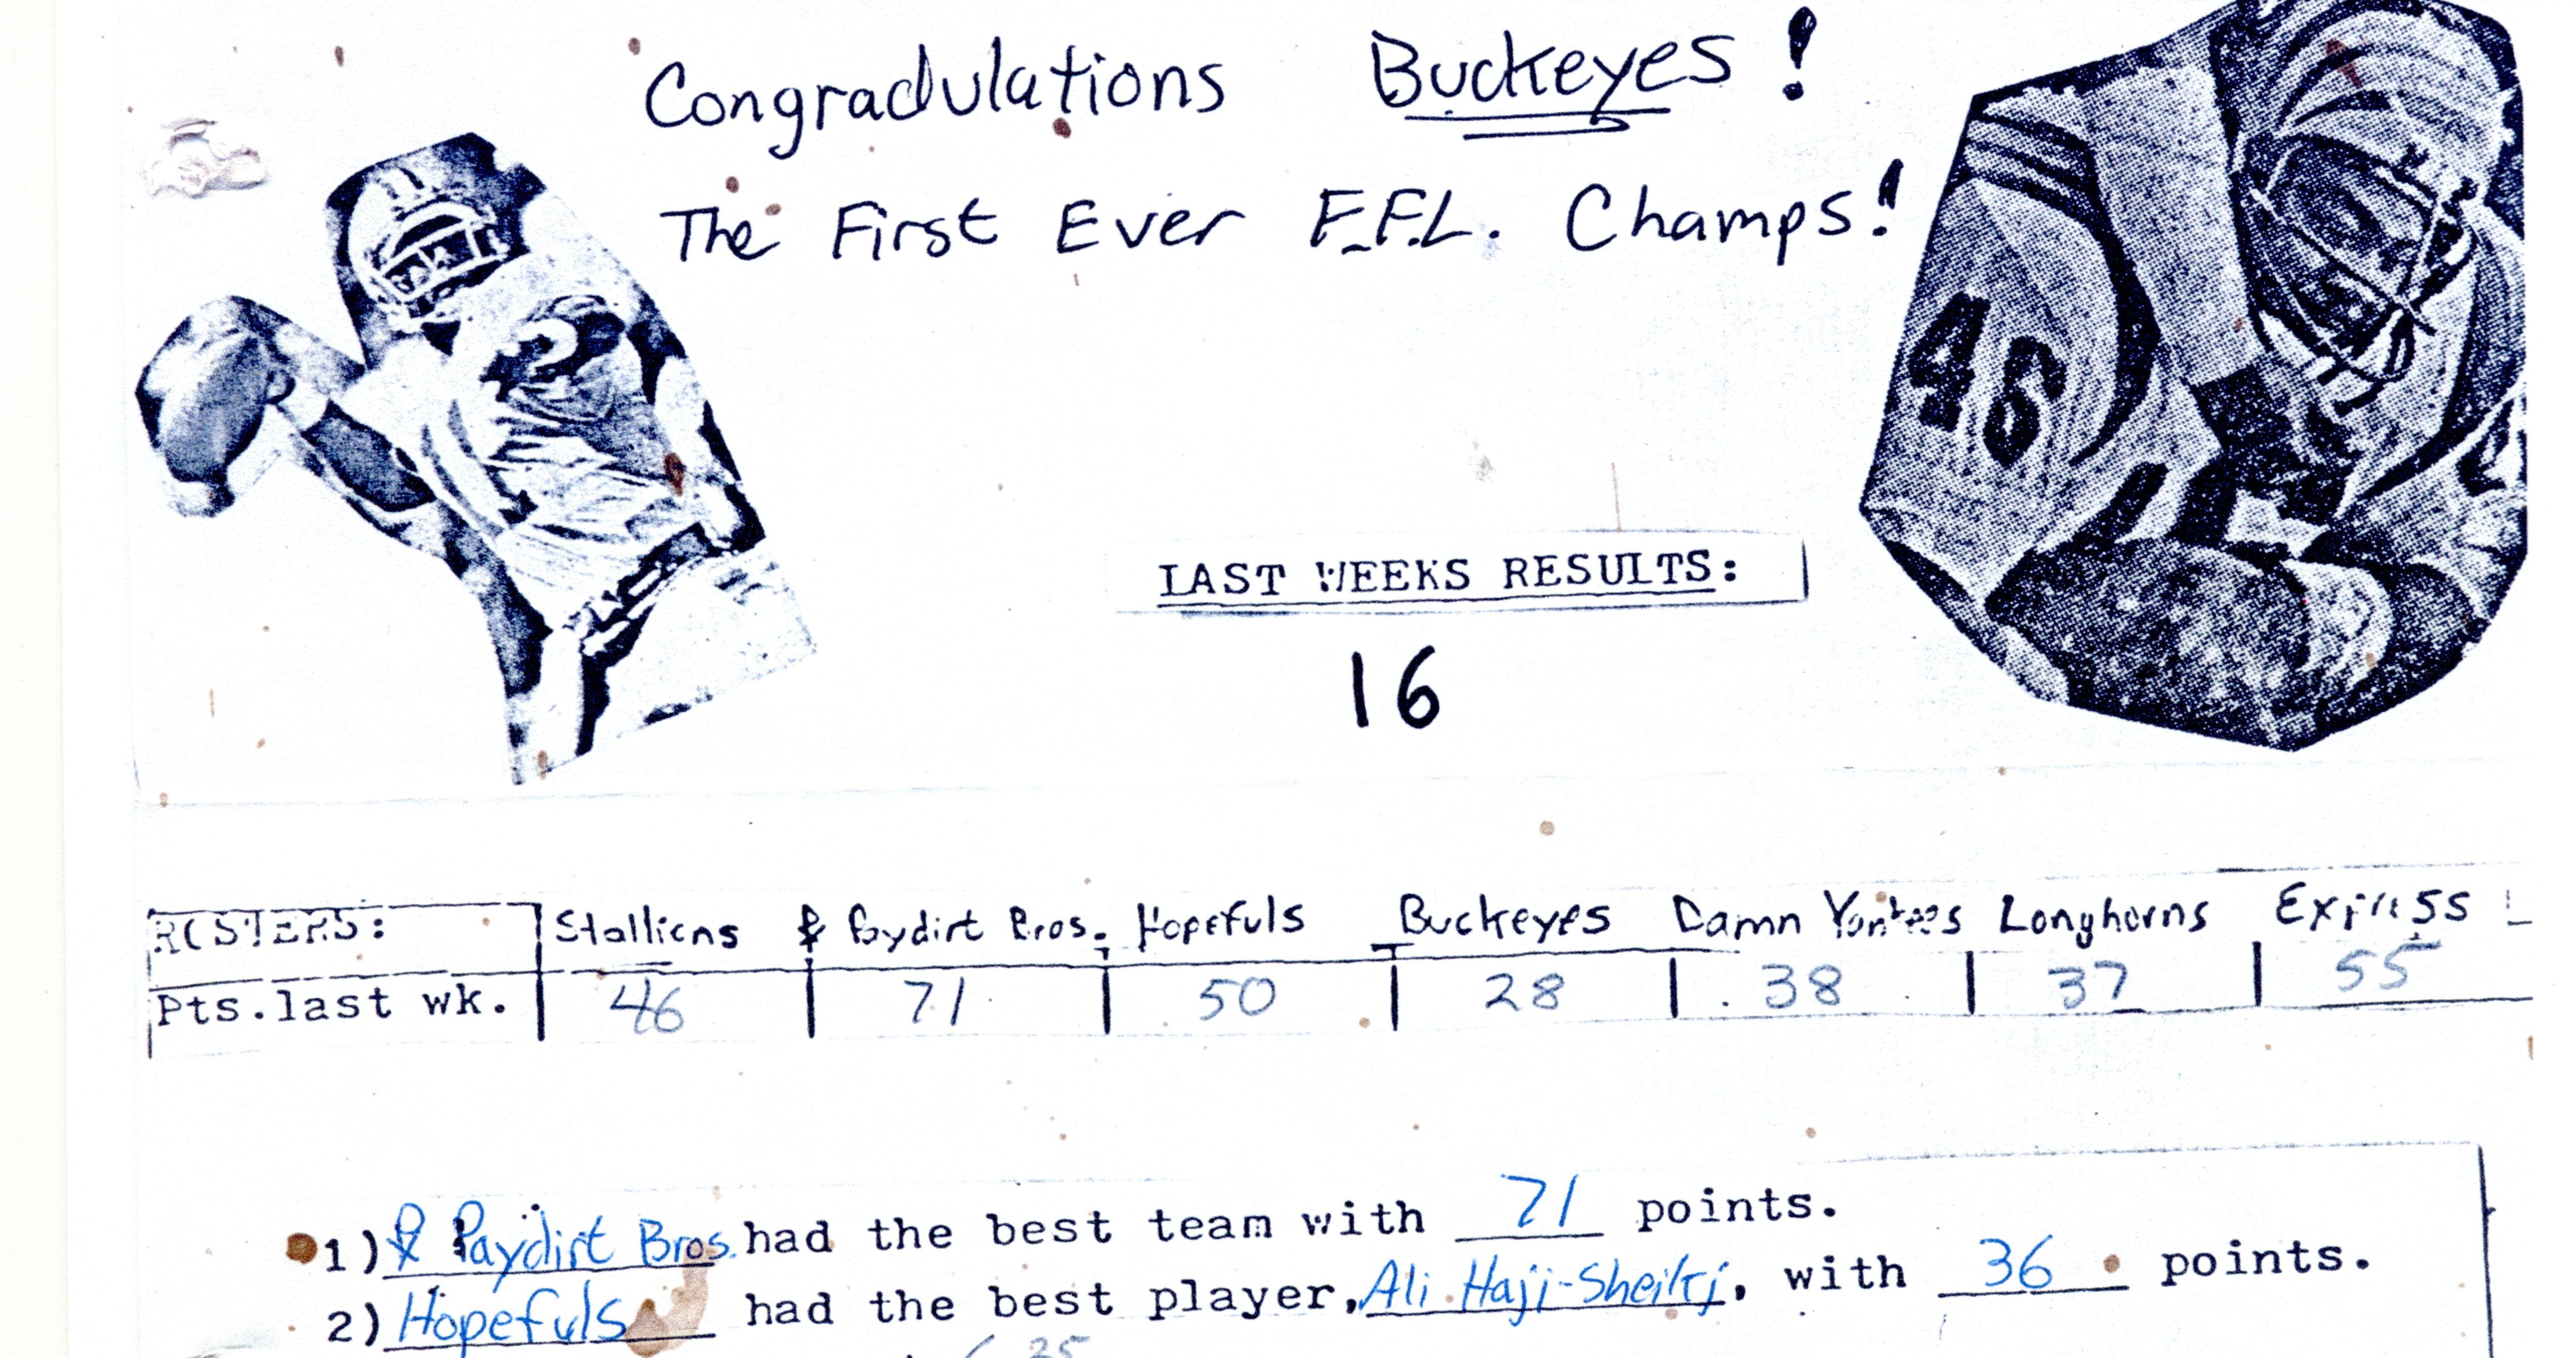 Congradulations Buckeyes!
The First Ever F.F.L. Champs!
46
LAST WEEKS RESULTS:
16
ROSTERS: Stallions & Paydirt Bros. Hopefuls Buckeyes Damn Yankees Longhorns Express
Pts.last wk. 46 71 50 28 38 37 55
1) & Paydirt Bros. had the best team with 71 points.
2) Hopefuls had the best player, Ali Haji-Sheikj, with 36 points.